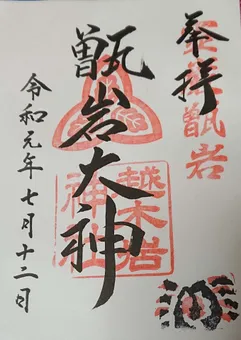 奉拝
霊岩甑岩
甑岩大神
越木岩
神社
令和元年七月十二日